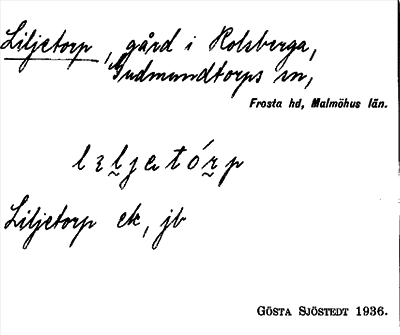 Liljetorp, gård i Holsberga,
Gudmundtorps sn,
Frosta hd, Malmöhus län.
lɩl̰jetór̰p
Liljetorp ek, jb
GÖSTA SJÖSTEDT 1936.